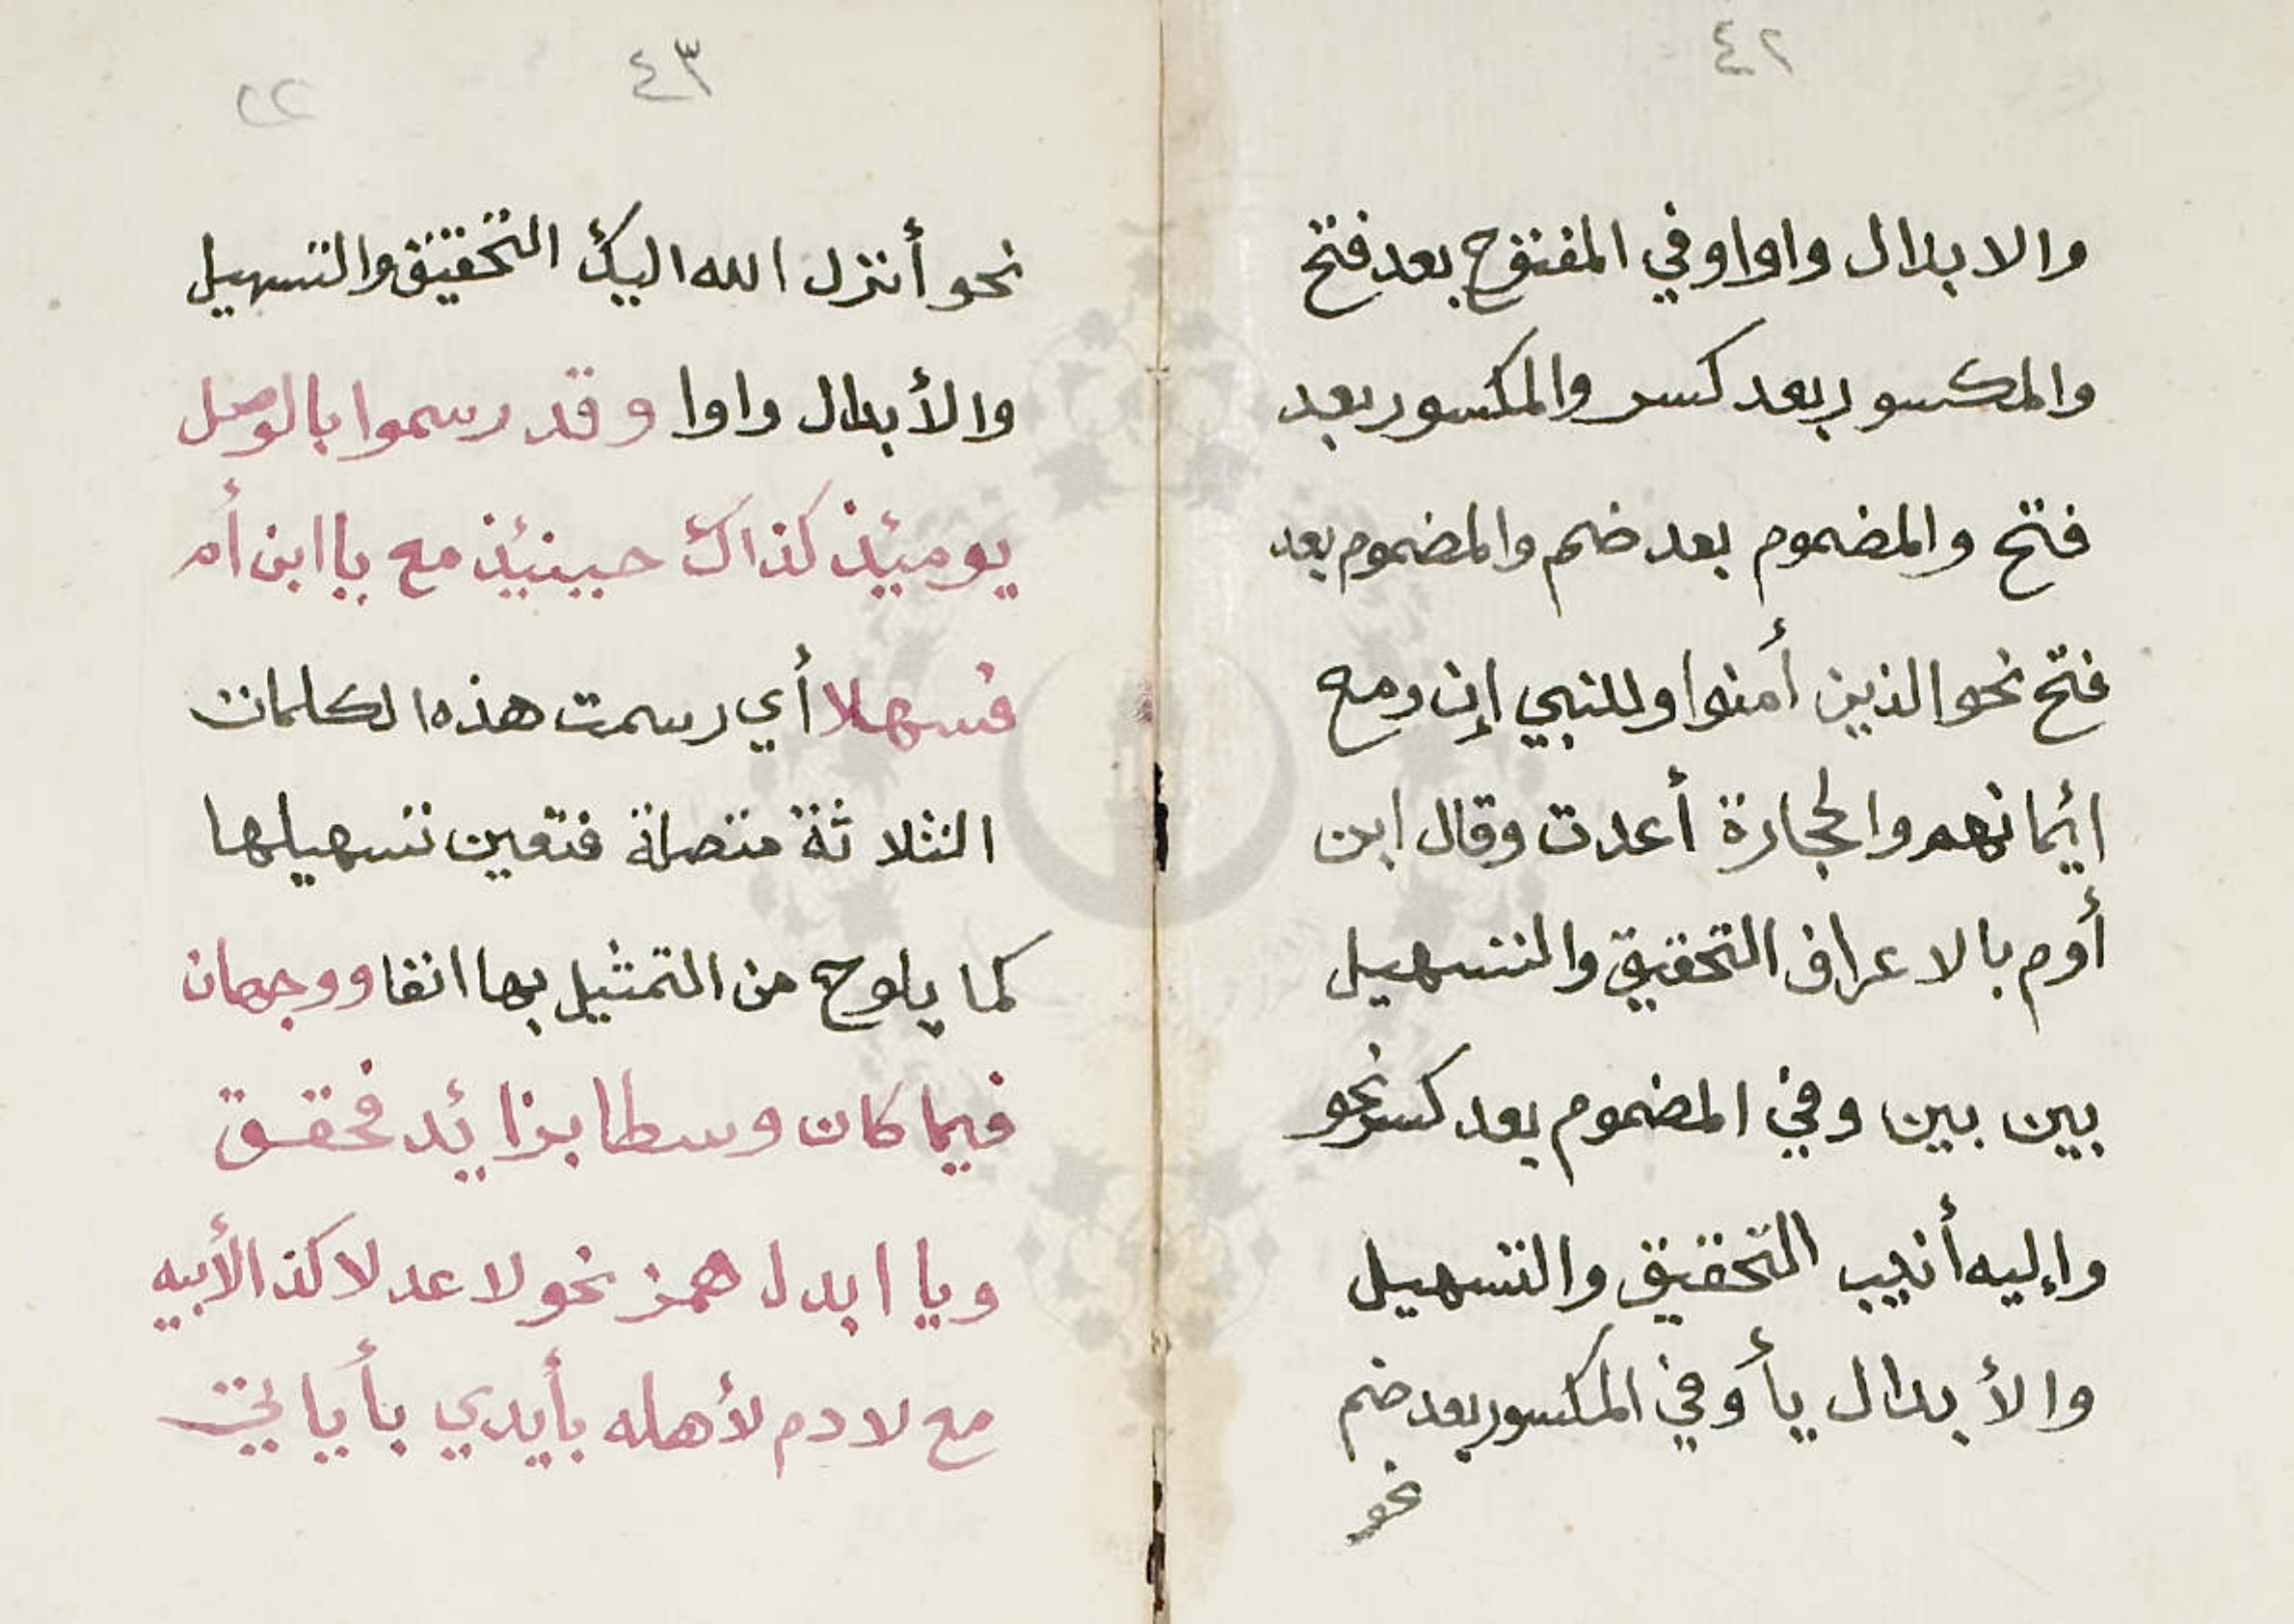 ٤٢
والابدال واوا وفي المفتوح بعد فتح
والمكسور بعد كسر والمكسور بعد
فتح والمضموم بعد ضم والمضموم بعد
فتح نحو الذين أمنوا وللنبي إن ومع
ائيمانهم والحجارة أعدت وقال ابن
أوم بالاعراف التحقيق والتسهيل
بين بين وفي المضموم بعد كسر نحو
وإليه أنيب التحقيق والتسهيل
والأبدال يأ وفي المكسور بعد ضم
نحو
٤٣
٢٢
نحو أنزل الله اليك التحقيق والتسهيل
والأبدال واوا وقد رسموا بالوصل
يوميئذ كذاك حيينئذ مع يا ابن أم
فسهلا أي رسمت هذه الكلمات
الثلاثة متصلة فتعين تسهيلها
كما يلوح من التمثيل بها انفا ووجهان
فيما كان وسطا بزائد فحقق
ويا ابدل همز نحو لا عد لا كذ الأبيه
مع لادم لأهله بأيدي بأيا